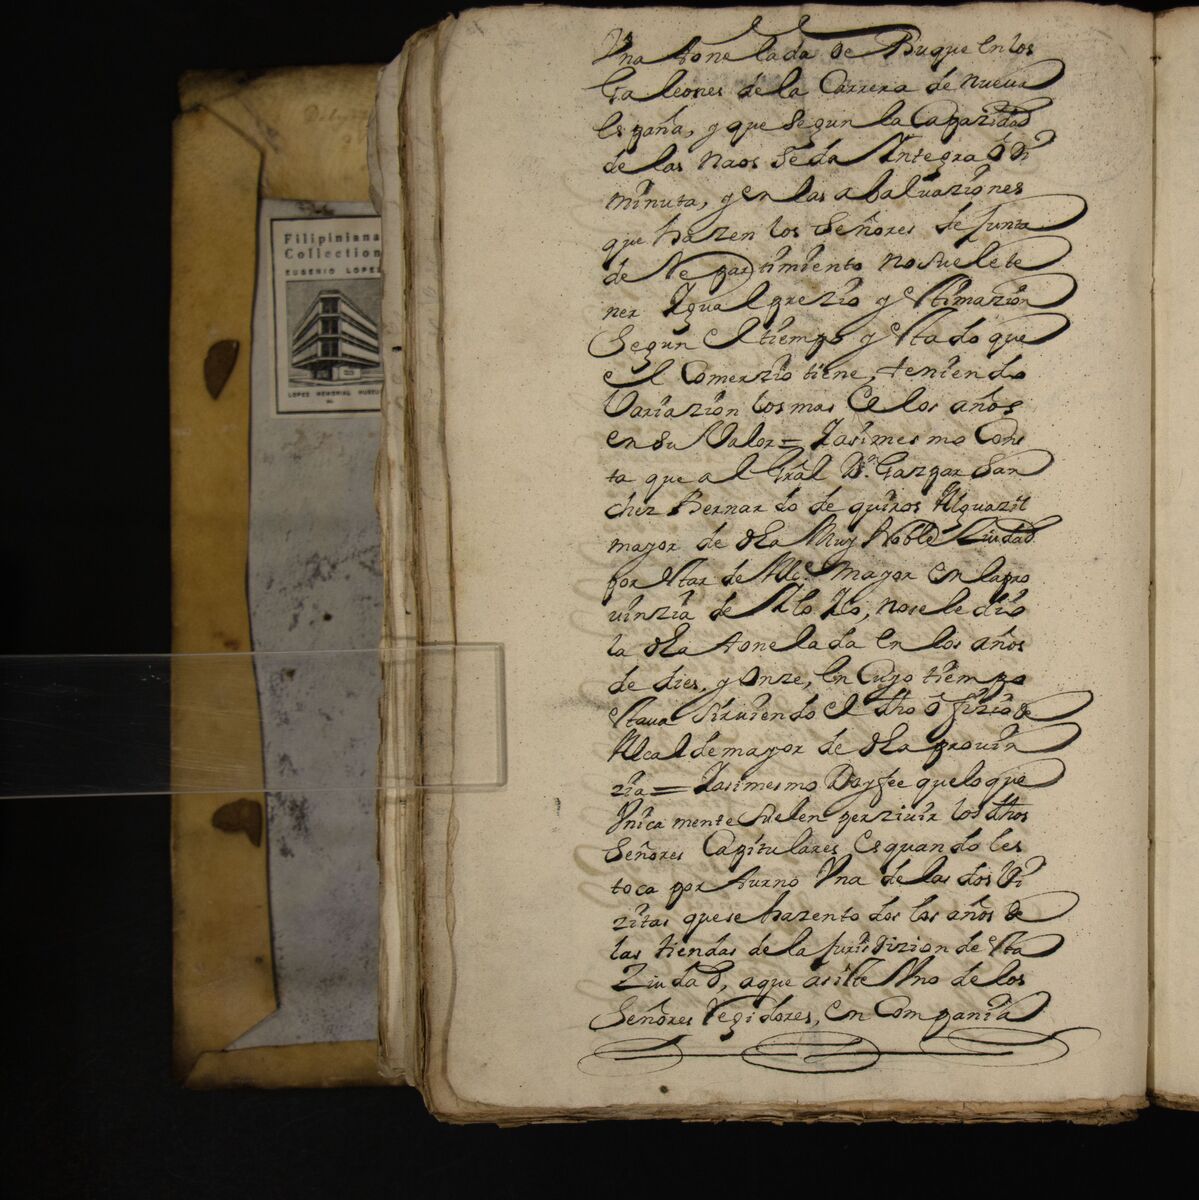 Filipiniana
Collection
EUGENIO LOPEZ
LOPEZ MEMORIAL MUSEU
Vna tonelada de Buque en los
Galeones de la Carrera de nueva
españa, y que segun la Capazidad
de las naos se da Yntegra ô di
minuta, y en las abaluaziones
que hazen los Señores de Junta
de Repartimiento no suele te
ner Ygual prezio y estimazion
Segun el tiempo y estado que
el Comerzio tiene, teniendo
Variazion los mas de los años
en su Valor = Yasimesmo Cons
ta que a el Gràl Dn. Gaspar San
chez Bernardo de quiros Alguazil
mayor de dha Muy Noble Ziudad
por estar de Alce. mayor en la pro
uinzia de Ylo Ylo, no se le dio
la dha tonelada en los años
de dies, y onze, en Cuyo tiempo
estaua siruiendo el dho ofizio de
Alcalde mayor de dha prouin
zia = Yasimesmo Doy fee que lo que
Vnicamente suelen perziuir los dhos
Señores Capitulares, es quando les
toca por turno Vna de las dos Vi
zitas que se hazen todos los años de
las tiendas de la Jurisdizion de esta
Ziudad, a que asiste Vno de los
Señores Regidores, en Compania